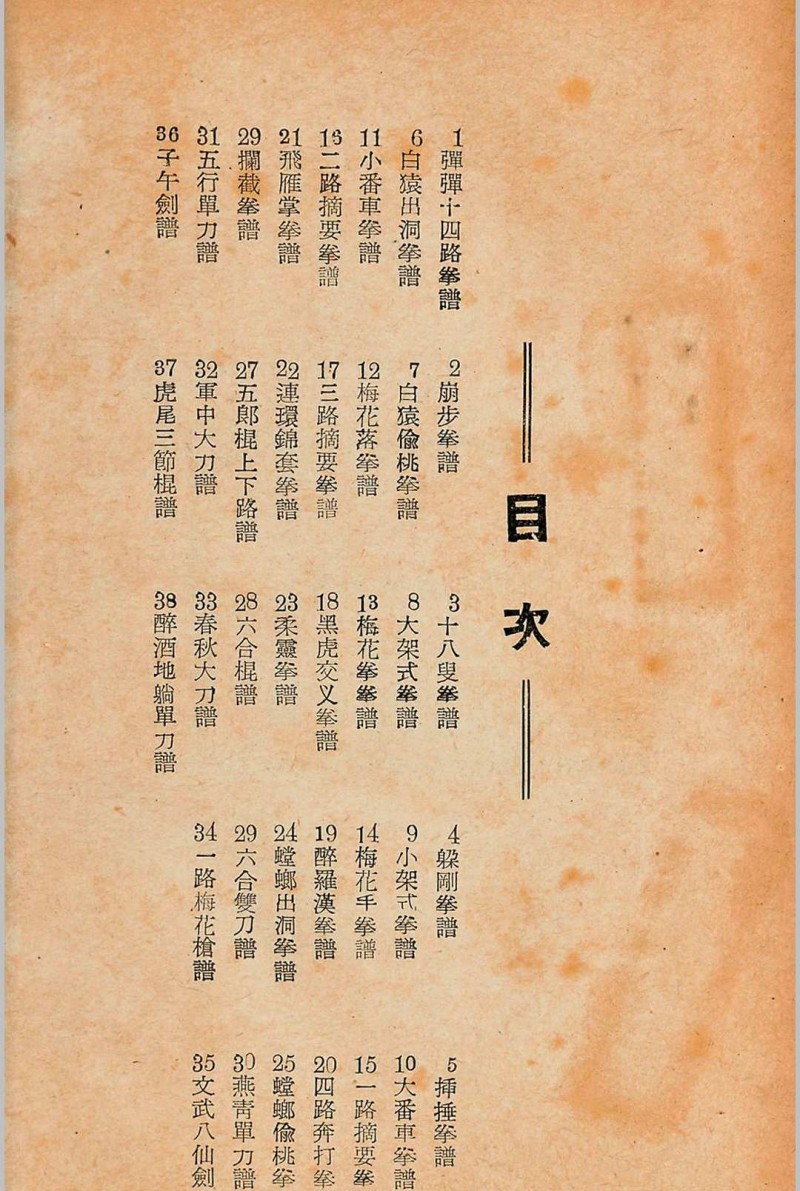 目次
1 彈彈十四路拳譜
2 崩步拳譜
3 十八叟拳譜
4 躱剛拳譜
5 挿捶拳譜
6 白猿出洞拳譜
7 白猿偸桃拳譜
8 大架式拳譜
9 小架式拳譜
10 大番車拳譜
11 小番車拳譜
12 梅花落拳譜
13 梅花拳拳譜
14 梅花手拳譜
15 一路摘要拳
16 二路摘要拳譜
17 三路摘要拳譜
18 黑虎交叉拳譜
19 醉羅漢拳譜
20 四路奔打拳
21 飛雁掌拳譜
22 連環錦套拳譜
23 柔靈拳譜
24 螳螂出洞拳譜
25 螳螂偸桃拳
29 攔截拳譜
27 五郎棍上下路譜
28 六合棍譜
29 六合雙刀譜
30 燕靑單刀譜
31 五行單刀譜
32 軍中大刀譜
33 春秋大刀譜
34 一路梅花槍譜
35 文武八仙劍
36 子午劍譜
37 虎尾三節棍譜
38 醉酒地躺單刀譜